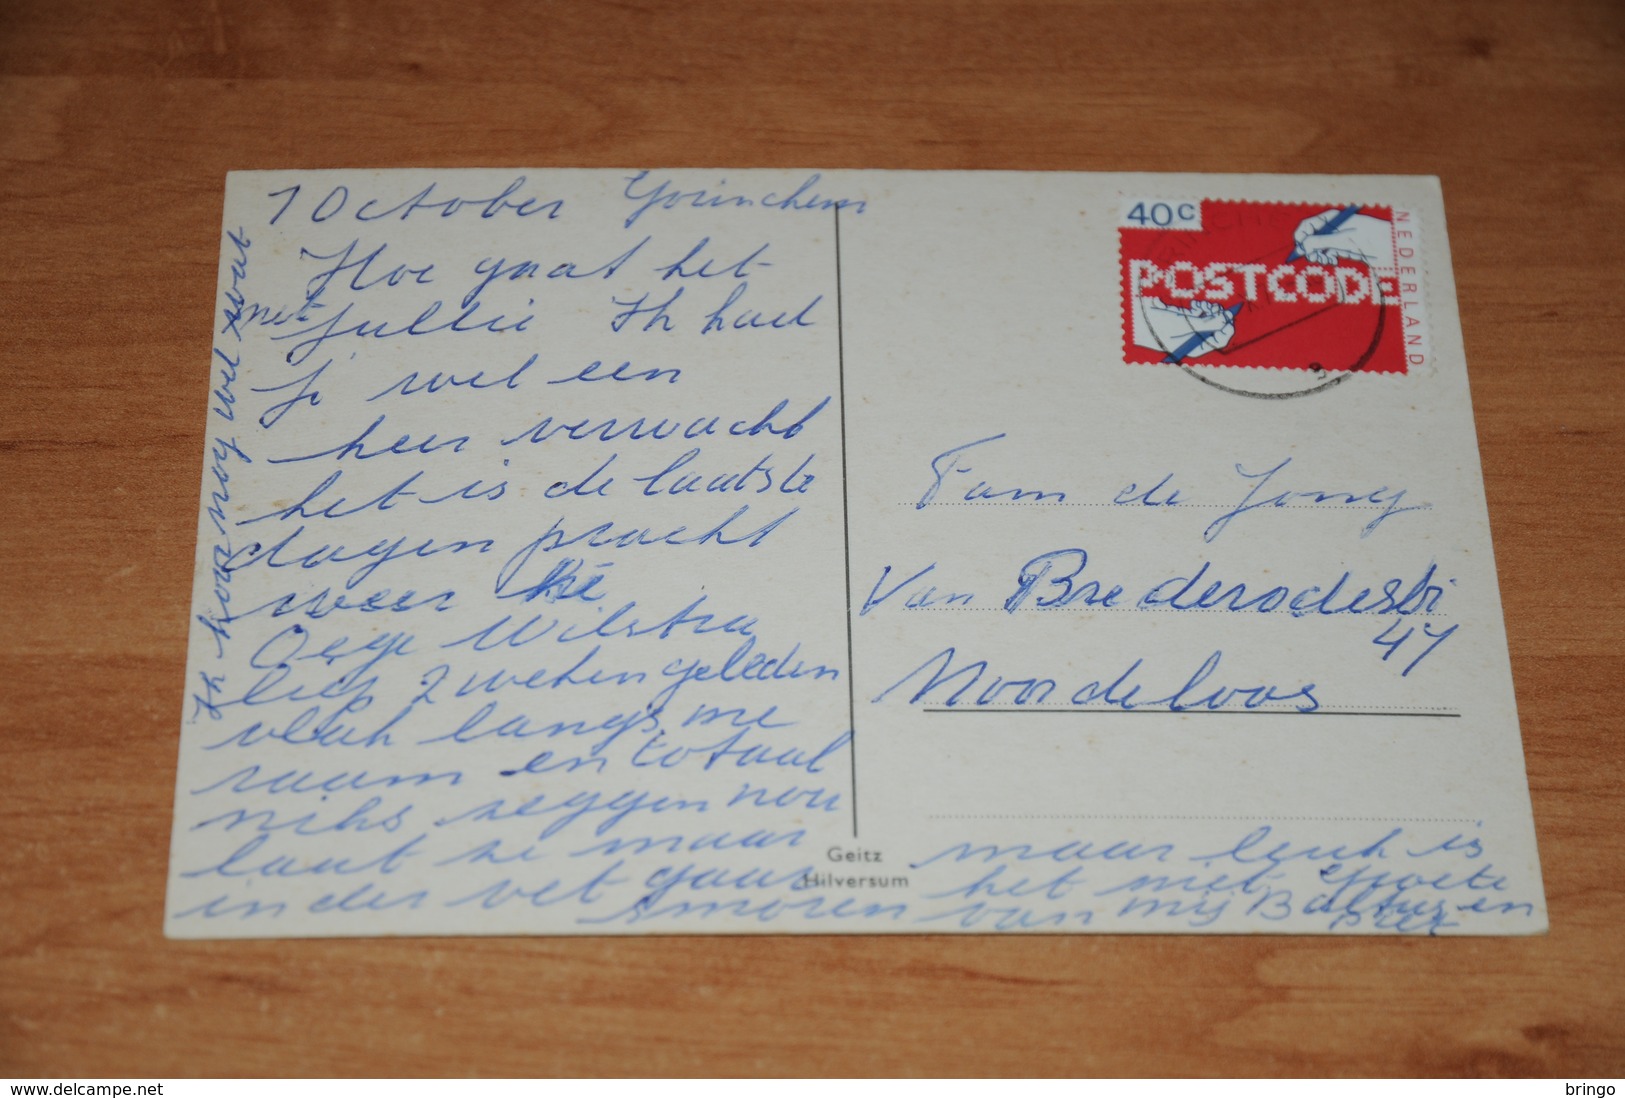 1 October Gorinchem
Hoe gaat het
met jullie Ik had
je wel een
keer verwacht
het is de laatste
dagen pracht
weer
Oege Wilstra
liep 2 weken geleden
vlak langs me
raam en totaal
niks zeggen nou
laat ze maar
in der vet gaar
smoren
maar leuk is
het niet Groete
van mij Baltus en
Piet
Ik hoor nog wel wat
40c
NEDERLAND
POSTCODE
Fam de Jong
Van Brederodestr
47
Noordeloos
Geitz
Hilversum
delcampe.net
bringo